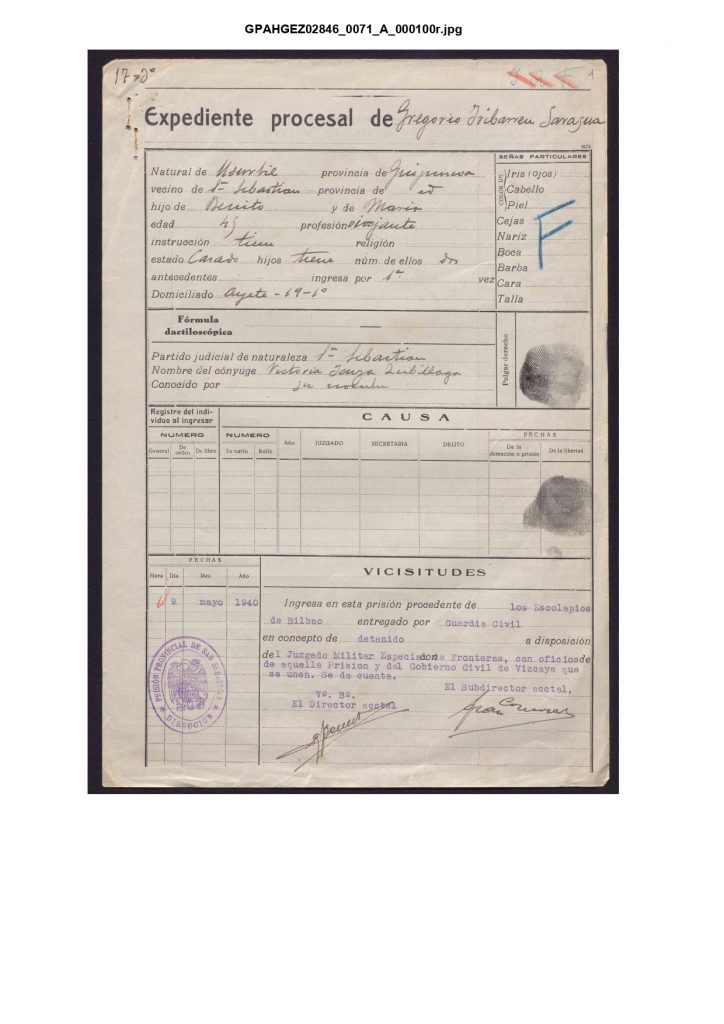 GPAHGEZ02846_0071_A_000100r.jpg
Expediente procesal de Gregorio Iribarren Sarasua
Natural de Usurbil provincia de Guipuzcoa
vecino de Sn Sebastian provincia de id
hijo de Benito y de Maria
edad 45 profesión viajante
instrucción tiene religión
estado Casado hijos tiene núm de ellos dos
antecedentes ingresa por 1ª vez
Domiciliado Ayete - 19 - 1º
SEÑAS PARTICULARES
COLOR DE
Iris (ojos)
Cabello
Piel
Cejas
Nariz
Boca
Barba
Cara
Talla
F
Fórmula
dactiloscópica
Pulgar derecho
Partido judicial de naturaleza Sn Sebastian
Nombre del cónyuge Victoria
Conocido por su nombre
Registro del indi-
viduo al ingresar
CAUSA
NUMERO NUMERO Año JUZGADO SECRETARIA DELITO FECHAS
General De orden De libro Sumario Rollo De la detención o prisión De la libertad
FECHAS
Hora Día Mes Año
VICISITUDES
9 mayo 1940 Ingresa en esta prisión procedente de los Escolapios
de Bilbao entregado por Guardia Civil
en concepto de detenido a disposición
del Juzgado Militar Especial de Fronteras, con oficios de
de aquella Prision y del Gobierno Civil de Vizcaya que
se unen. Se da cuenta.
Vº. Bº. El Subdirector acctal,
El Director acctal
PRISIÓN PROVINCIAL DE SAN SEBASTIAN
DIRECCION